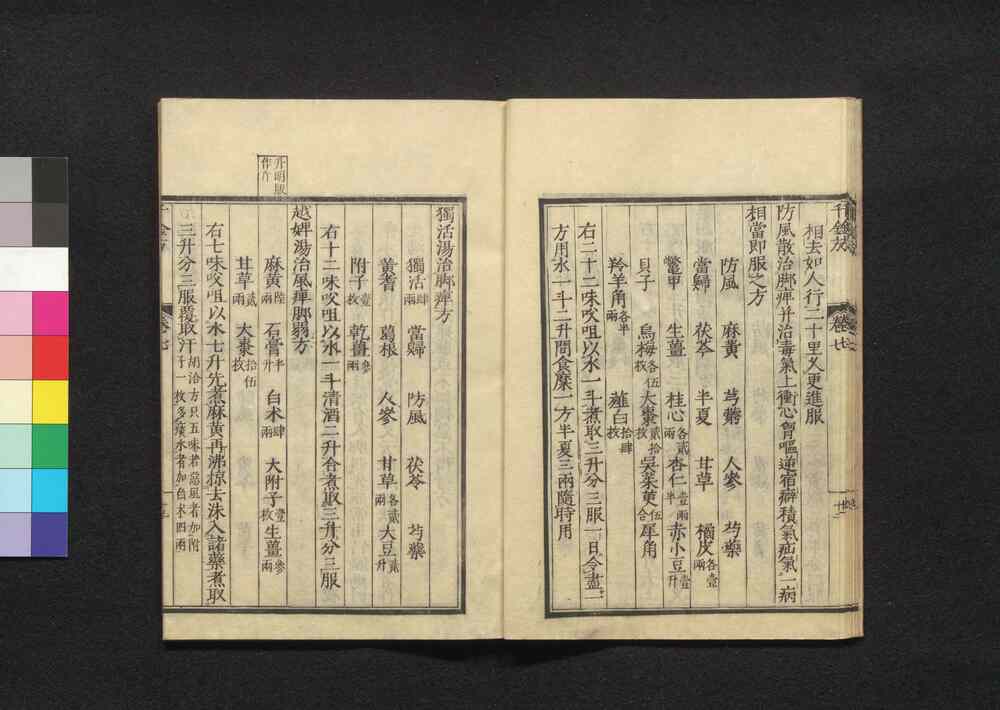 千金方
卷七
相去如人行二十里久更進服
防風散治脚痺并治毒氣上衝心胷嘔逆宿癖積氣疝氣一病
相當即服之方
防風 麻黃 芎藭 人參 芍藥
當歸 茯苓 半夏 甘草 橘皮各壹兩
鼈甲 生薑 桂心各貳兩 杏仁壹兩半 赤小豆壹升
貝子 烏梅各伍枚 大棗貳拾枚 吴茱萸伍合 犀角
羚羊角各半兩 薤白拾肆枚
右二十二味㕮咀以水一斗煮取三升分三服一日令盡一
方用水一斗二升間食糜一方半夏三兩隨時用
獨活湯治脚痺方
獨活肆兩 當歸 防風 茯苓 芍藥
黃耆 葛根 人參 甘草各貳兩 大豆貳升
附子壹枚 乾薑參兩
右十二味㕮咀以水一斗清酒二升合煮取三升分三服
越婢湯治風痺脚弱方
麻黃陸兩 石膏半升 白术肆兩 大附子壹枚 生薑參兩
甘草貳兩 大棗拾伍枚
右七味㕮咀以水七升先煮麻黃再沸掠去沫入諸藥煮取
三升分三服覆取汗胡洽方只五味若惡風者加附
一枚多痰水者加白术四兩
升明版
作斤
千金方
卷七